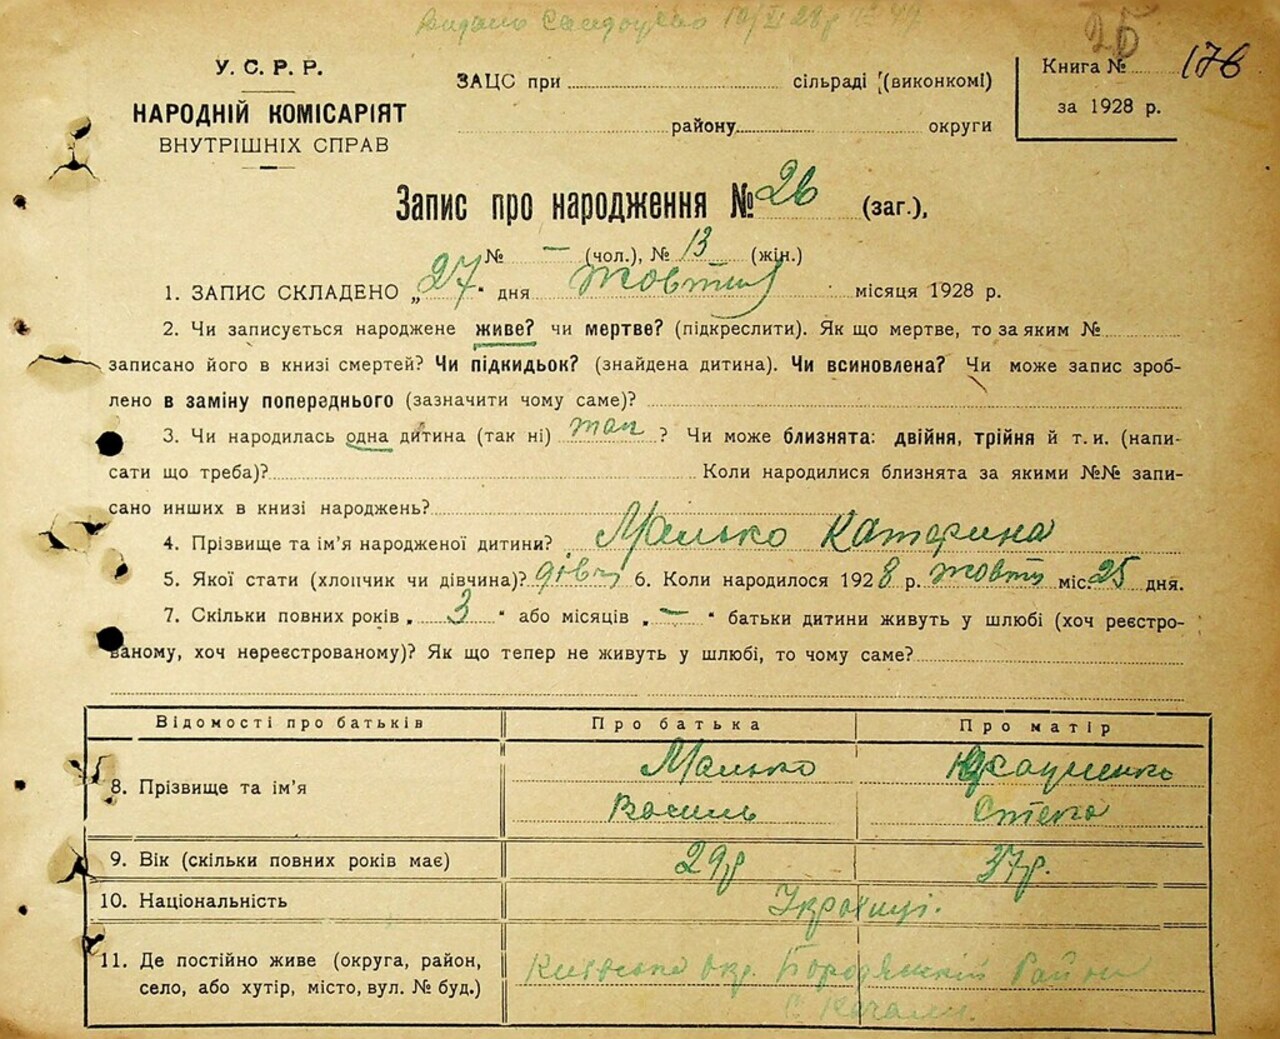 У. С. Р. Р.
НАРОДНІЙ КОМІСАРІЯТ
ВНУТРІШНІХ СПРАВ
ЗАЦС при сільраді (виконкомі)
району округи
Книга № 176
за 1928 р.
25
Запис про народження № 26 (заг.),
№ — (чол.), № 13 (жін.)
1. ЗАПИС СКЛАДЕНО „27" дня жовтня місяця 1928 р.
2. Чи записується народжене живе? чи мертве? (підкреслити). Як що мертве, то за яким №
записано його в книзі смертей? Чи підкидьок? (знайдена дитина). Чи всиновлена? Чи може запис зроб-
лено в заміну попереднього (зазначити чому саме)?
3. Чи народилась одна дитина (так ні) так ? Чи може близнята: двійня, трійня й т. и. (напи-
сати що треба)? Коли народилися близнята за якими №№ запи-
сано инших в книзі народжень?
4. Прізвище та ім'я народженої дитини? Малько Катерина
5. Якої стати (хлопчик чи дівчина)? дівч 6. Коли народилося 1928 р. жовтн міс. 25 дня.
7. Скільки повних років „ 3 " або місяців „ — " батьки дитини живуть у шлюбі (хоч реєстро-
ваному, хоч нереєстрованому)? Як що тепер не живуть у шлюбі, то чому саме?
Відомості про батьків Про батька Про матір
8. Прізвище та ім'я Малько
Василь
9. Вік (скільки повних років має) 29р 37р.
10. Національність Українці.
11. Де постійно живе (округа, район, Київська окр. Бородянський Район
село, або хутір, місто, вул. № буд.) с. Качали.